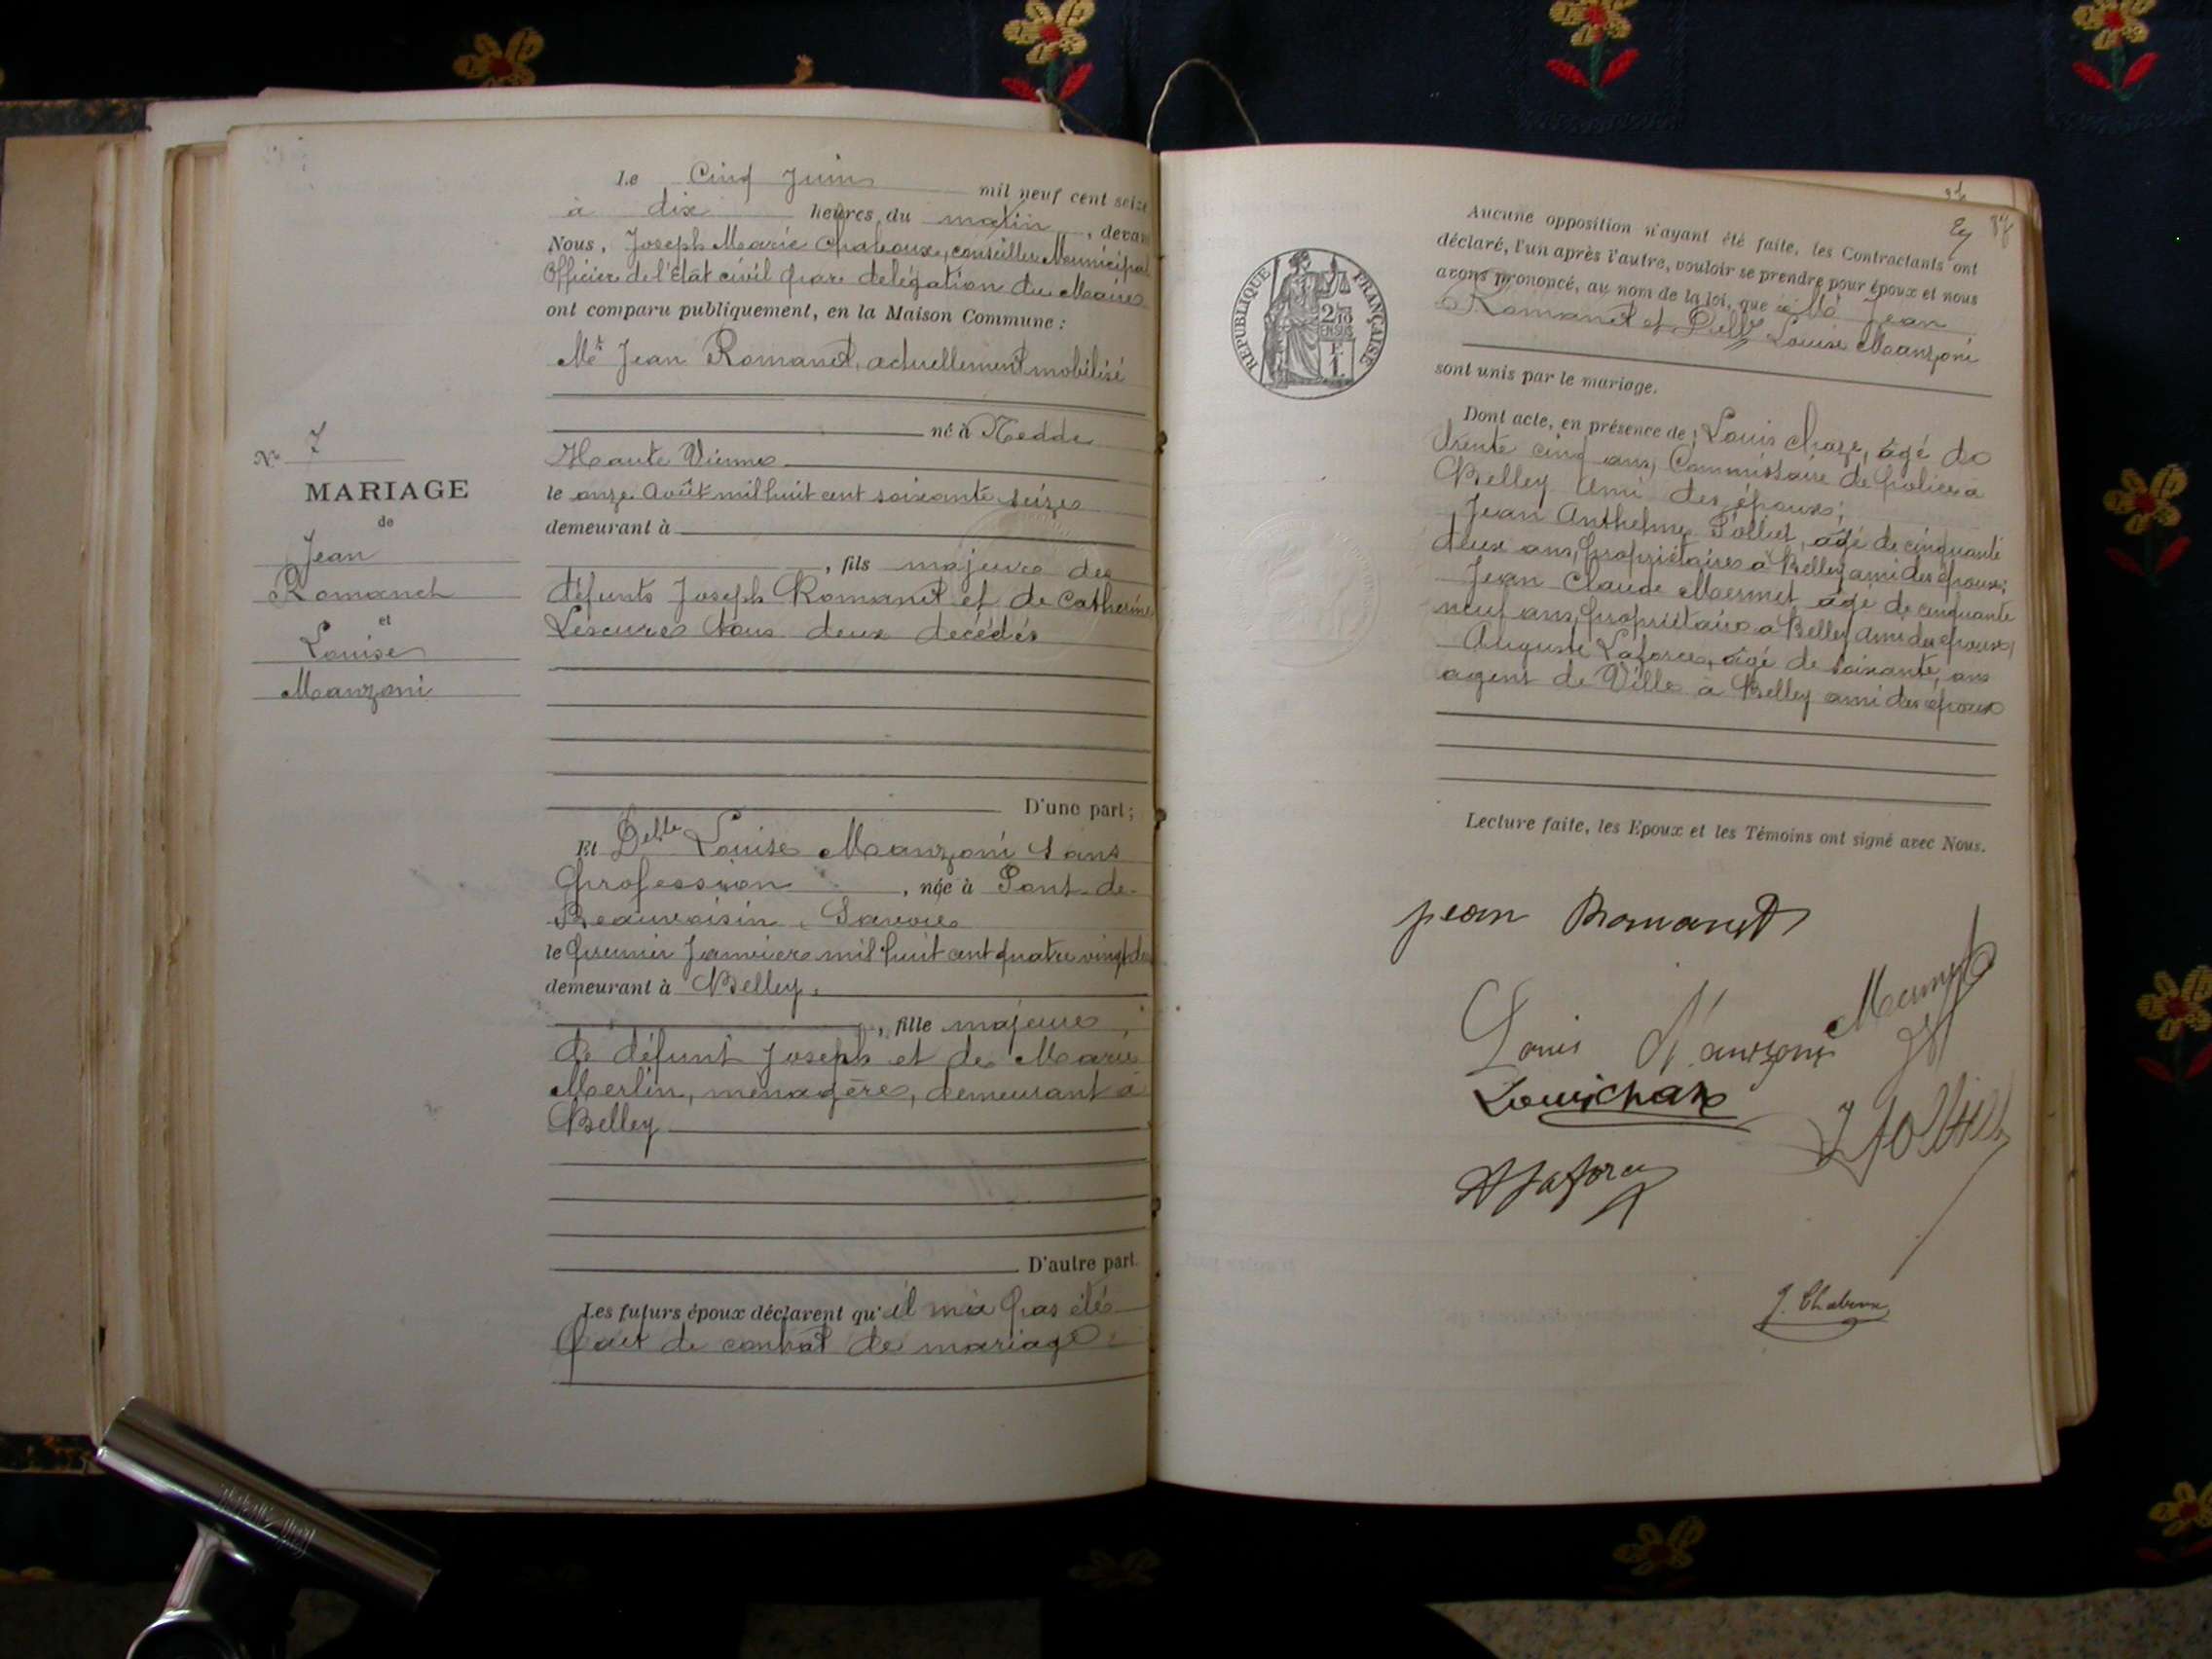 Le Cinq Juin mil neuf cent seize
à dix heures du matin, devant
Nous, Joseph Marie Chaboux, conseiller Municipal
Officier de l'Etat civil par délégation du Maire
ont comparu publiquement, en la Maison Commune :
Mr Jean Romanet, actuellement mobilisé
né à Nedde
Haute Vienne
le onze Août mil huit cent soixante seize
demeurant à
, fils majeur des
défunts Joseph Romanet et de Catherine
Lescure tous deux décédés
D'une part ;
Et Delle Louise Manzoni sans
profession, née à Pont-de-
Beauvoisin, Savoie
le premier Janvier mil huit cent quatre vingt
demeurant à Belley.
, fille majeure,
de défunt Joseph et de Marie
Merlin, ménagère, demeurant à
Belley
D'autre part.
Les futurs époux déclarent qu'il n'a pas été
fait de contrat de mariage.
No 7
MARIAGE
de
Jean
Romanet
et
Louise
Manzoni
87
Aucune opposition n'ayant été faite, les Contractants ont
déclaré, l'un après l'autre, vouloir se prendre pour époux et nous
avons prononcé, au nom de la loi, que Mr Jean
Romanet et Delle Louise Manzoni
sont unis par le mariage.
Dont acte, en présence de : Louis Chaze, âgé de
trente cinq ans, Commissaire de police à
Belley ami des époux;
Jean Anthelme Tollet, âgé de cinquante
deux ans, propriétaire à Belley ami des époux;
Jean Claude Mermet âgé de cinquante
neuf ans, propriétaire à Belley ami des époux,
Auguste Laforce, âgé de soixante, ans
agent de Ville à Belley ami des époux
Lecture faite, les Epoux et les Témoins ont signé avec Nous.
jean Romanet
Mermet
Louis Manzoni
Louis Chaze
A Laforce
J. Chaboux
REPUBLIQUE FRANÇAISE
2/10
EN SUS
F.
1.